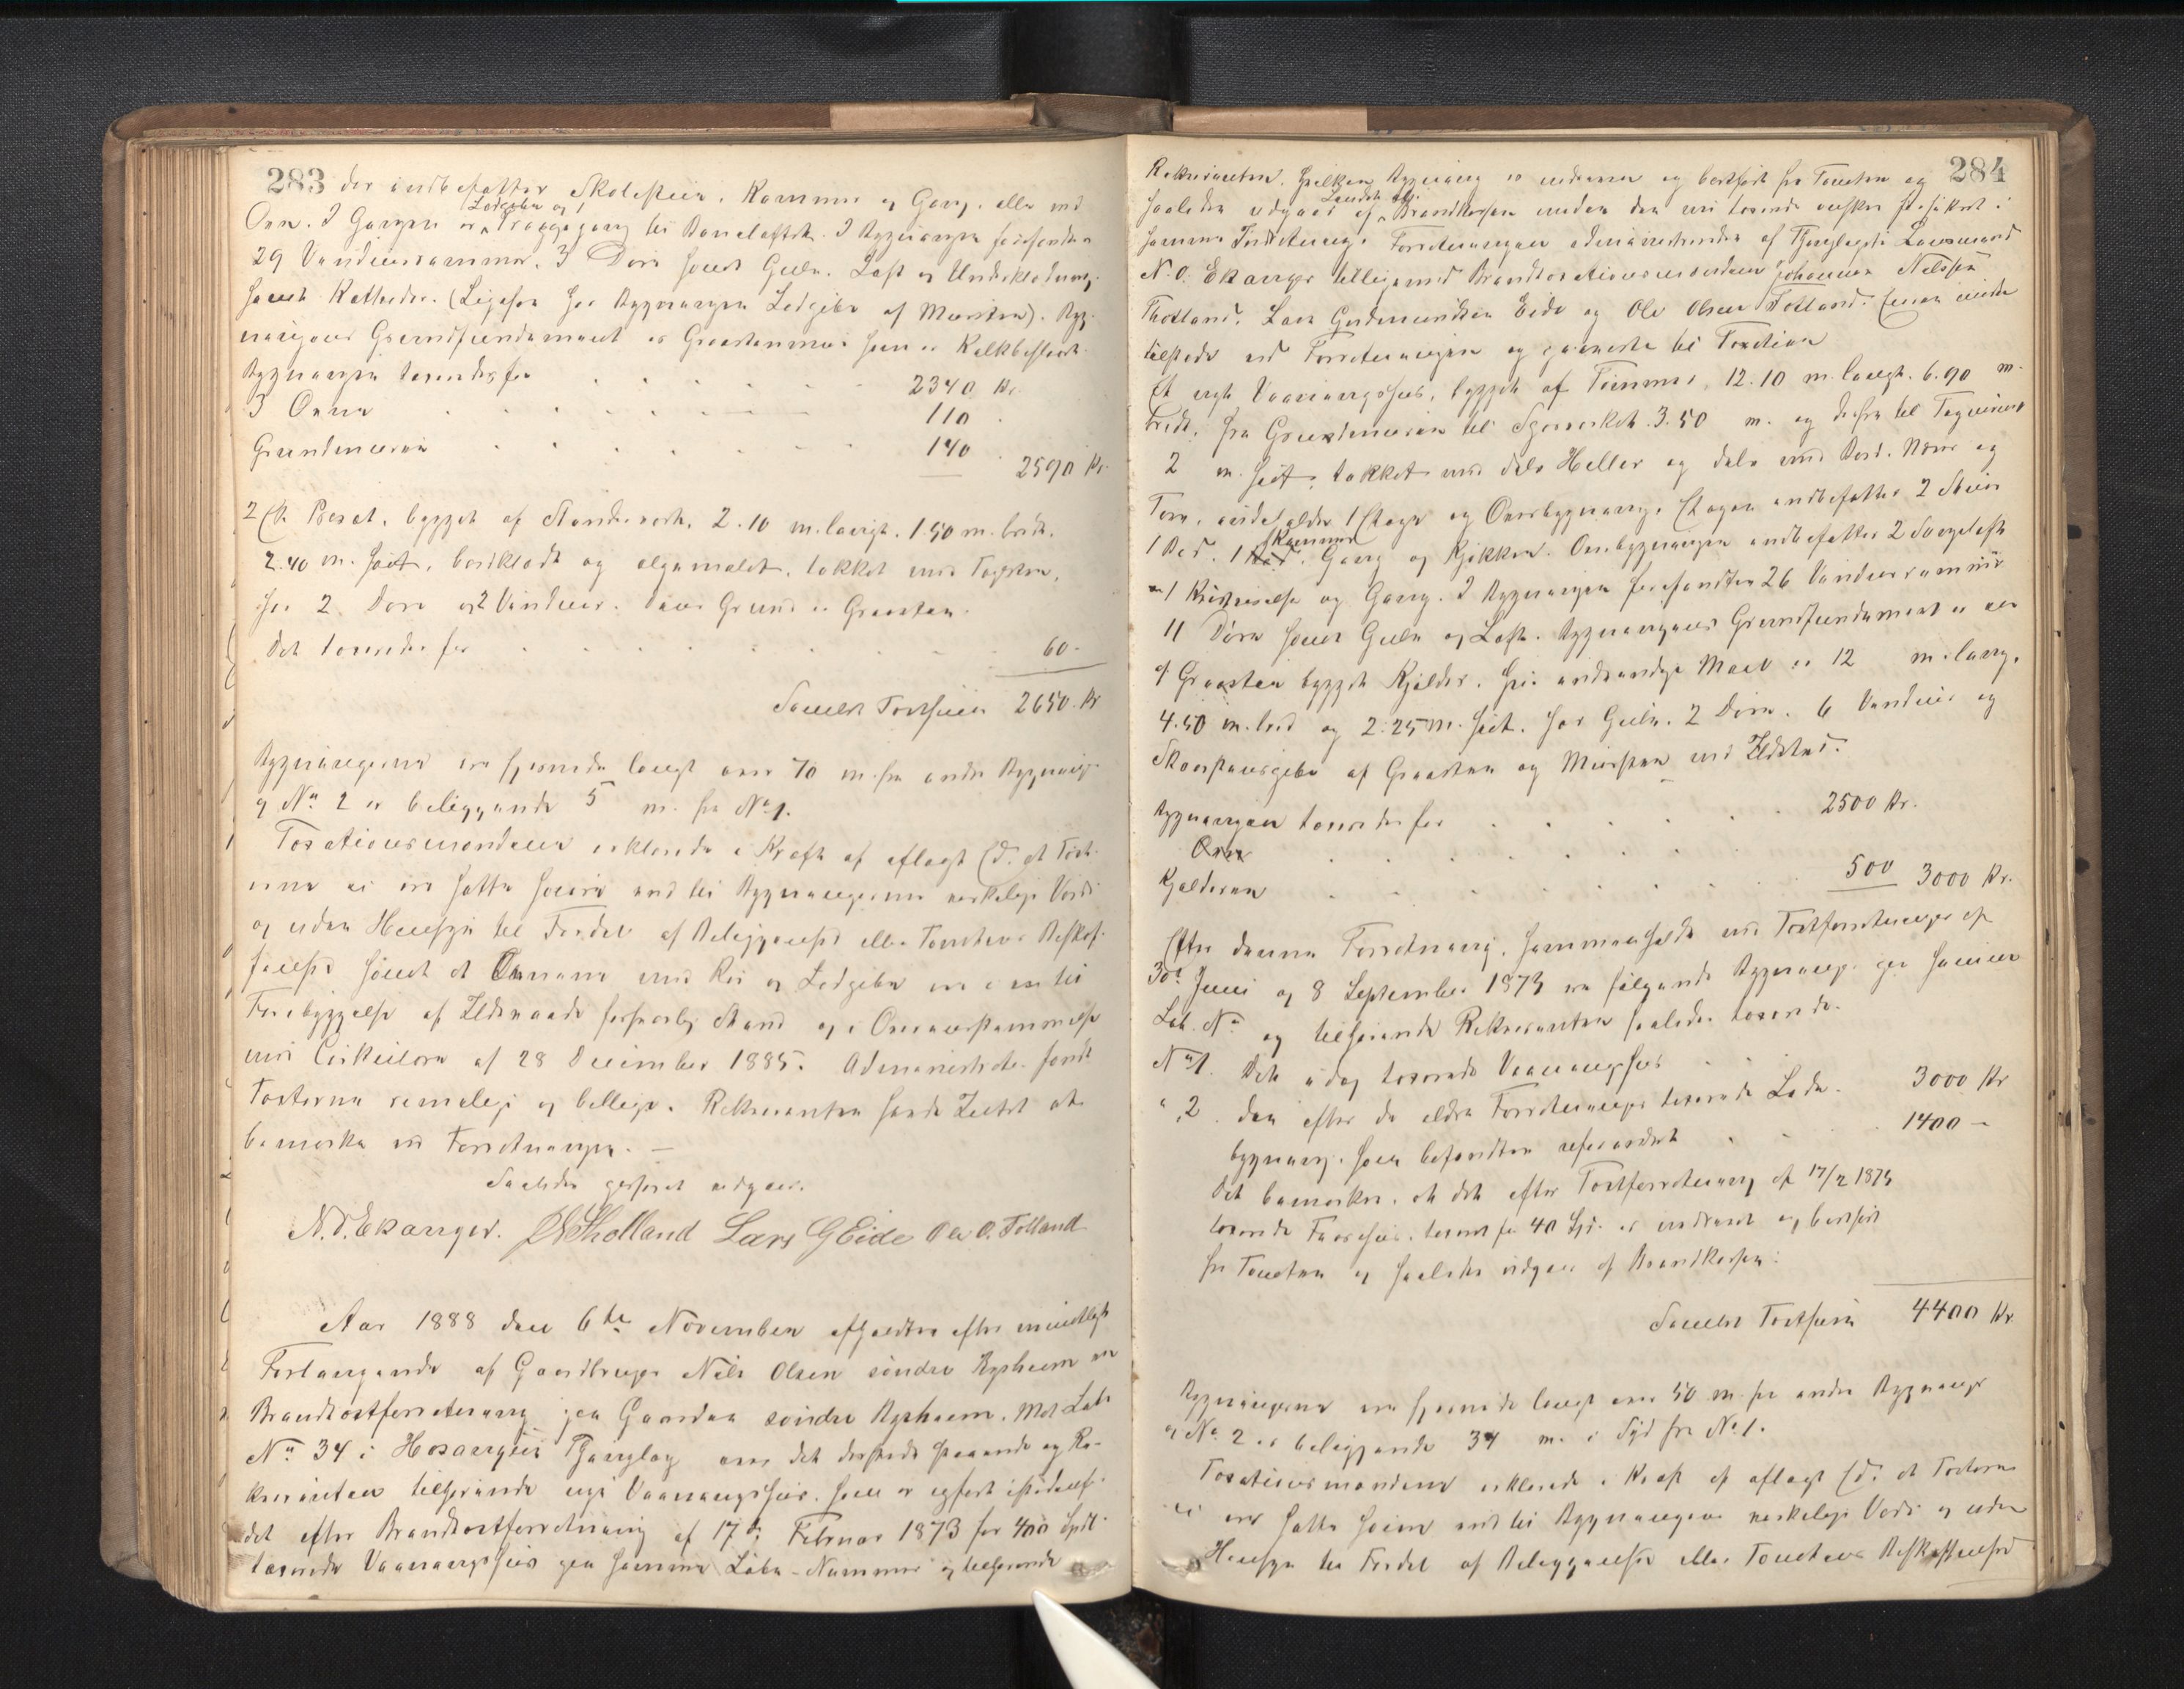 283
der indbefatter Skolestuen, Kammer og Gang, alle med
Ovn. I Gangen er Ledgibe og Trappegang til Paneloftet. I Bygningen forefandtes
29 Vinduesrammer, 3 Døre samt Gulv, Loft og Underklædning,
samt Katheder. (Ligesom har Bygningen Ledgibe af Mursten). Byg-
ningens Grundfundament er Graastensmur som er Kalkbeslaaet.
Bygningen taxeredes for 2340 Kr.
3 Ovne 110
Grundmuren 140 2590 Kr.
2 Et Privet, bygget af Stenderværk, 2.10 m. langt, 1.50 m. bredt,
2.40 m. høit, bordklædt og oljemalet, tækket med Tagsten,
har 2 Døre og 2 Vinduer. dens Grund er Graasten.
Det taxeredes for 60.
Samlet Taxtsum 2650 Kr
Bygningerne ere fjernede langt over 70 m. fra andre Bygninger
og No. 2 er beliggende 5 m. fra No 1.
Taxationsmændene erklærede i Kraft af aflagt Ed, at Taxt-
erne ei ere satte høiere end til Bygningernes virkelige Værdi
og uden Hensyn til Fordel af Beliggenhed eller Tomtens Beskaf-
fenhed samt at Ovnene med Rør og Ledgibe ere i en til
Forebyggelse af Ildsvaade forsvarlig Stand og i Overensstemmelse
med Cirkulære af 28 December 1885. Administrator fandt
Taxterne rimelige og billige. Rekvirenten havde Intet at
bemærke ved Forretningen. —
Saaledes passeret udgaar.
N. O. Ekanger. J N Thotland Lars G Eide Ole O. Totland
Aar 1888 den 6te November afholdtes efter mundtligt
Forlangende af Gaardbruger Nils Olsen søndre Bysheim en
Brandtaxtforretning paa Gaarden søndre Bysheim, Mat. Løbe
No 34 i Hosanger Thinglag over det dersteds staaende og Re-
kvirenten tilhørende nye Vaaningshus, som er opført istedenfor
det efter Brandtaxtforretning af 17de Februar 1873 for 400 Spdl.
taxerede Vaaningshus paa samme Løbe-Nummer og tilhørende
284
Rekvirenten, hvilken Bygning er nedreven og bortført fra Tomten og
saaledes udgaar af Landets alm. Brandkasse medens den nu taxerede ønskes forsikret i
samme Indretning. Forretningen administreredes af Thinglagets Lensmand
N. O. Ekanger tilligemed Brandtaxationsmændene Johannes Nilssen
Thotland, Lars Gudmundsen Eide og Ole Olsen Totland. Eieren mødte
tilstede ved Forretningen og paaviste til Taxation
Et nyt Vaaningshus, bygget af Tømmer, 12.10 m. langt, 6.90 m.
bredt, fra Grundmuren til Sperreskot 3.50 m. og derfra til Tagmønet
2 m. høit, tækket med dels Heller og dels med Bord, Næver og
Torv, indeholder 1 Etage og Overbygning. Etagen indbefatter 2 Stuer
1 Bod, 1 Kammer, Gang og Kjøkken. Overbygningen indbefatter 2 Sovelofte
1 Kværrelse og Gang. I Bygningen forefandtes 26 Vinduesrammer
11 Døre samt Gulv og Loft. Bygningens Grundfundament er en
af Graasten bygget Kjelder, hvis indvendige Maal er 12 m. lang,
4.50 m. bred og 2.25 m. høit, har Gulv, 2 Døre, 6 Vinduer og
Skorstenspibe af Graasten og Mursten med Ildsted.
Bygningen taxeredes for 2500 Kr.
Kjelderen 500 3000 Kr.
Efter denne Forretning, sammenholdt med Taxtforretninger af
30te Juni og 8 September 1873 ere følgende Bygninger paa samme
Løb. No og tilhørende Rekvirenten saaledes taxerede.
No 1. Det i dag taxerede Vaaningshus 3000 Kr
" 2. den efter de ældre Forretninger taxerede Lade-
bygning, som befandtes uforandret 1400 –
Det bemærkes, at det efter Taxtforretning af 17/2 1873
taxerede Faarehus, taxeret for 40 Spd. er nedrevet og bortført
fra Tomten og saaledes udgaar af Brandkassen.
Samlet Taxtsum 4400 Kr.
Bygningerne ere fjernede langt over 50 m. fra andre Bygninger
og No. 2 er beliggende 34 m. i Syd fra No 1.
Taxationsmændene erklærede i Kraft af aflagt Ed, at Taxterne
ei ere satte høiere end til Bygningernes virkelige Værdi og uden
Hensyn til Fordel af Beliggenhed eller Tomtens Beskaffenhed